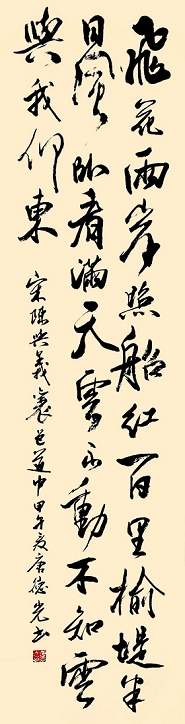 飛花兩岸照船紅百里榆堤半
日風卧看滿天雲不動不知雲
與我俱東
宋陳與義襄邑道中甲午夏唐德光書